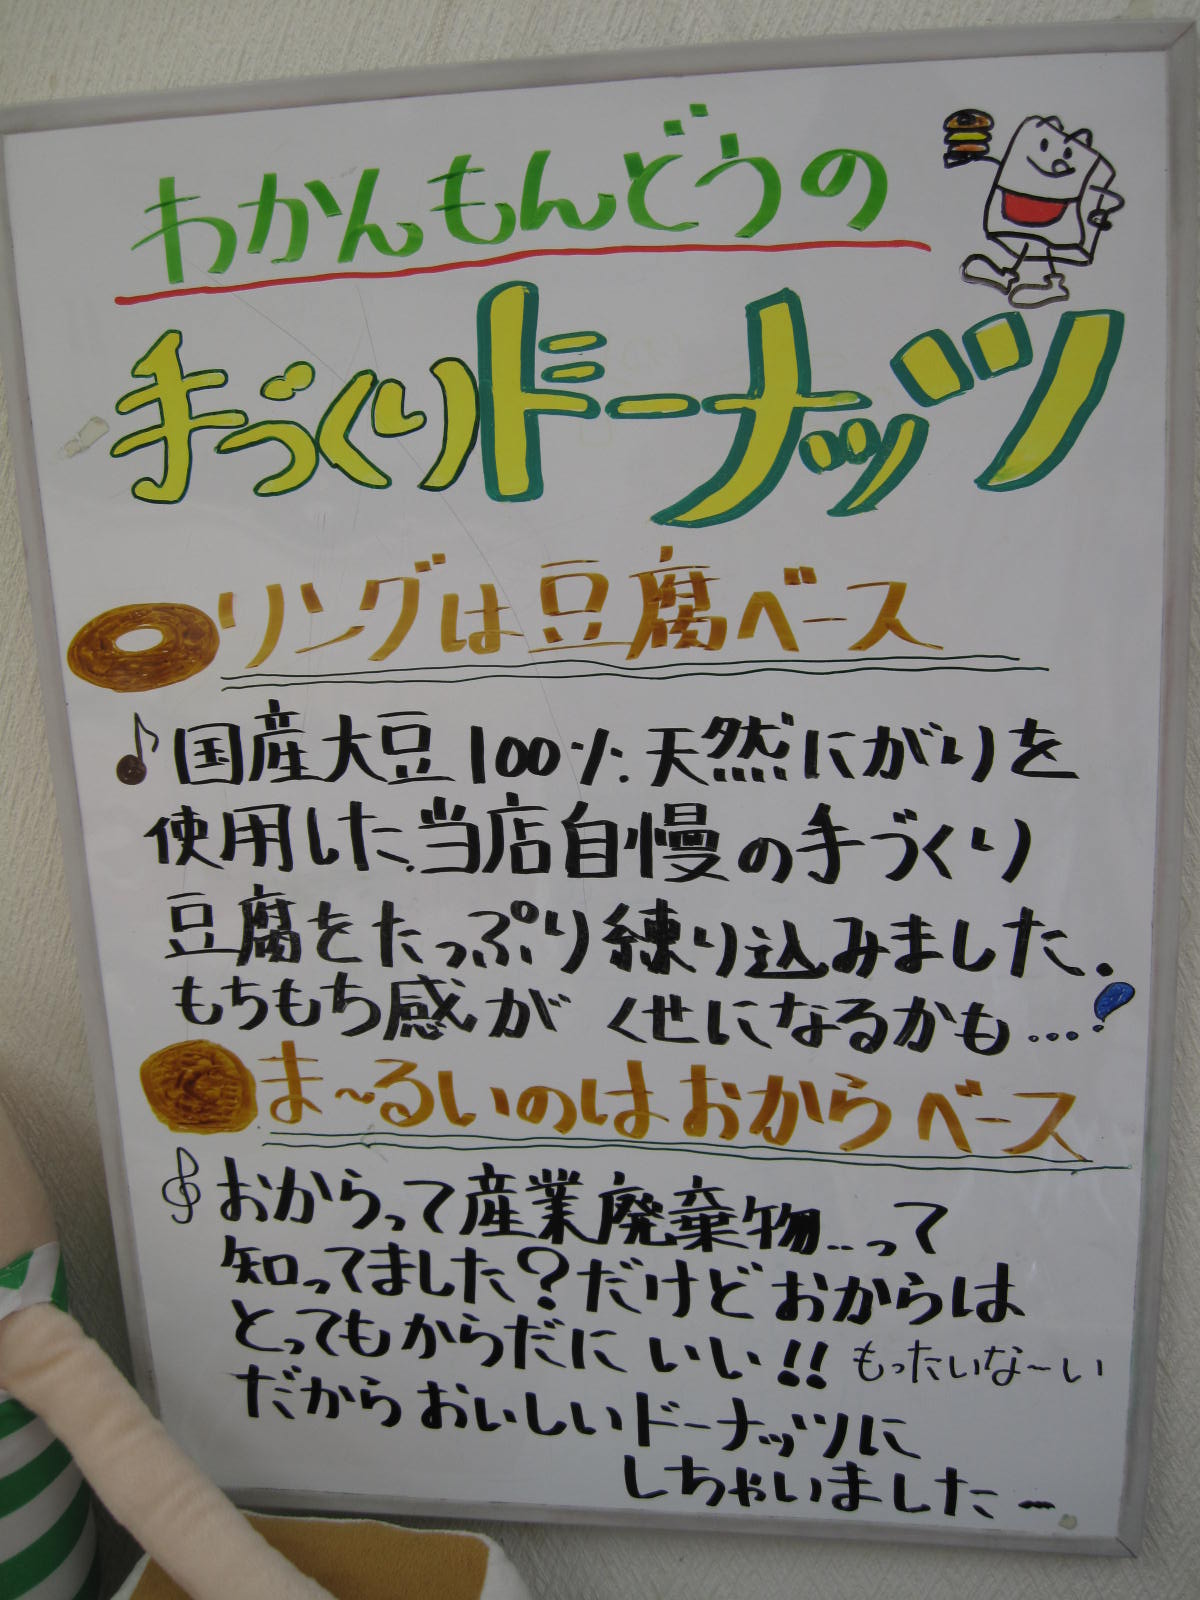 わかんもんどうの
手づくりドーナッツ
リングは豆腐ベース
国産大豆100%天然にがりを
使用した、当店自慢の手づくり
豆腐をたっぷり練り込みました。
もちもち感が くせになるかも…!
ま〜るいのはおからベース
おからって産業廃棄物‥って
知ってました?だけどおからは
とってもからだに いい!! もったいな〜い
だからおいしいドーナッツに
しちゃいましたー